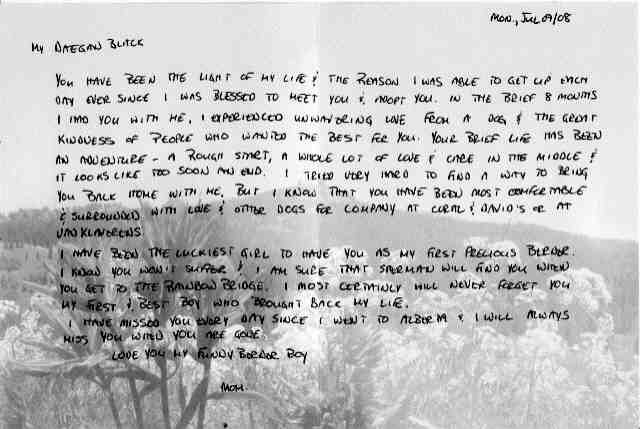 MON., JUL 07/08
MY DAEGAN BLACK
YOU HAVE BEEN THE LIGHT OF MY LIFE & THE REASON I WAS ABLE TO GET UP EACH
DAY EVER SINCE I WAS BLESSED TO MEET YOU & ADOPT YOU. IN THE BRIEF 8 MONTHS
I HAD YOU WITH ME, I EXPERIENCED UNWAVERING LOVE FROM A DOG & THE GREAT
KINDNESS OF PEOPLE WHO WANTED THE BEST FOR YOU. YOUR BRIEF LIFE HAS BEEN
AN ADVENTURE - A ROUGH START, A WHOLE LOT OF LOVE & CARE IN THE MIDDLE &
IT LOOKS LIKE TOO SOON AN END. I TRIED VERY HARD TO FIND A WAY TO BRING
YOU BACK HOME WITH ME, BUT I KNOW THAT YOU HAVE BEEN MOST COMFORTABLE
& SURROUNDED WITH LOVE & OTHER DOGS FOR COMPANY AT & DAVID'S OR AT
I HAVE BEEN THE LUCKIEST GIRL TO HAVE YOU AS MY FIRST PRECIOUS BERNER.
I KNOW YOU WON'T SUFFER & I AM SURE THAT SHERMAN WILL FIND YOU WHEN
YOU GET TO THE RAINBOW BRIDGE. I MOST CERTAINLY WILL NEVER FORGET YOU
MY FIRST & BEST BOY WHO BROUGHT BACK MY LIFE.
I HAVE MISSED YOU EVERY DAY SINCE I WENT TO ALBERTA & I WILL ALWAYS
MISS YOU WHEN YOU ARE GONE.
LOVE YOU MY FUNNY BERNER BOY
MOM.